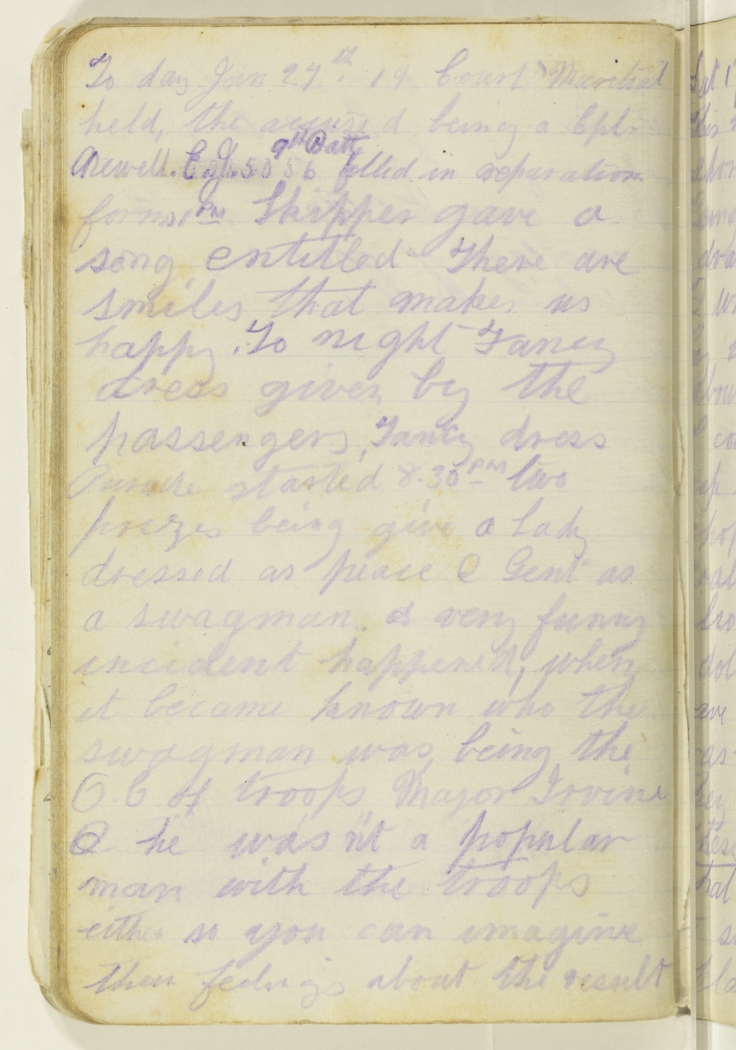 To day Jan 27th. 19 Court Martial
held, the accused being a Cpl.
9th Batt
5056 filled in separation
forms. PM Skipper gave a
song entitled "There are
smiles that makes us
happy. To night Fancy
dress given by the
passengers, Fancy dress
Parade started 8.30 PM two
prizes being give a Lady
dressed as peace & Gent as
a swagman. A very funny
incident happened, when
it became known who the
swagman was being the
O.C of troops Major Irvine
& he was'nt a popular
man with the troops
either so you can imagine
their feelings about the result